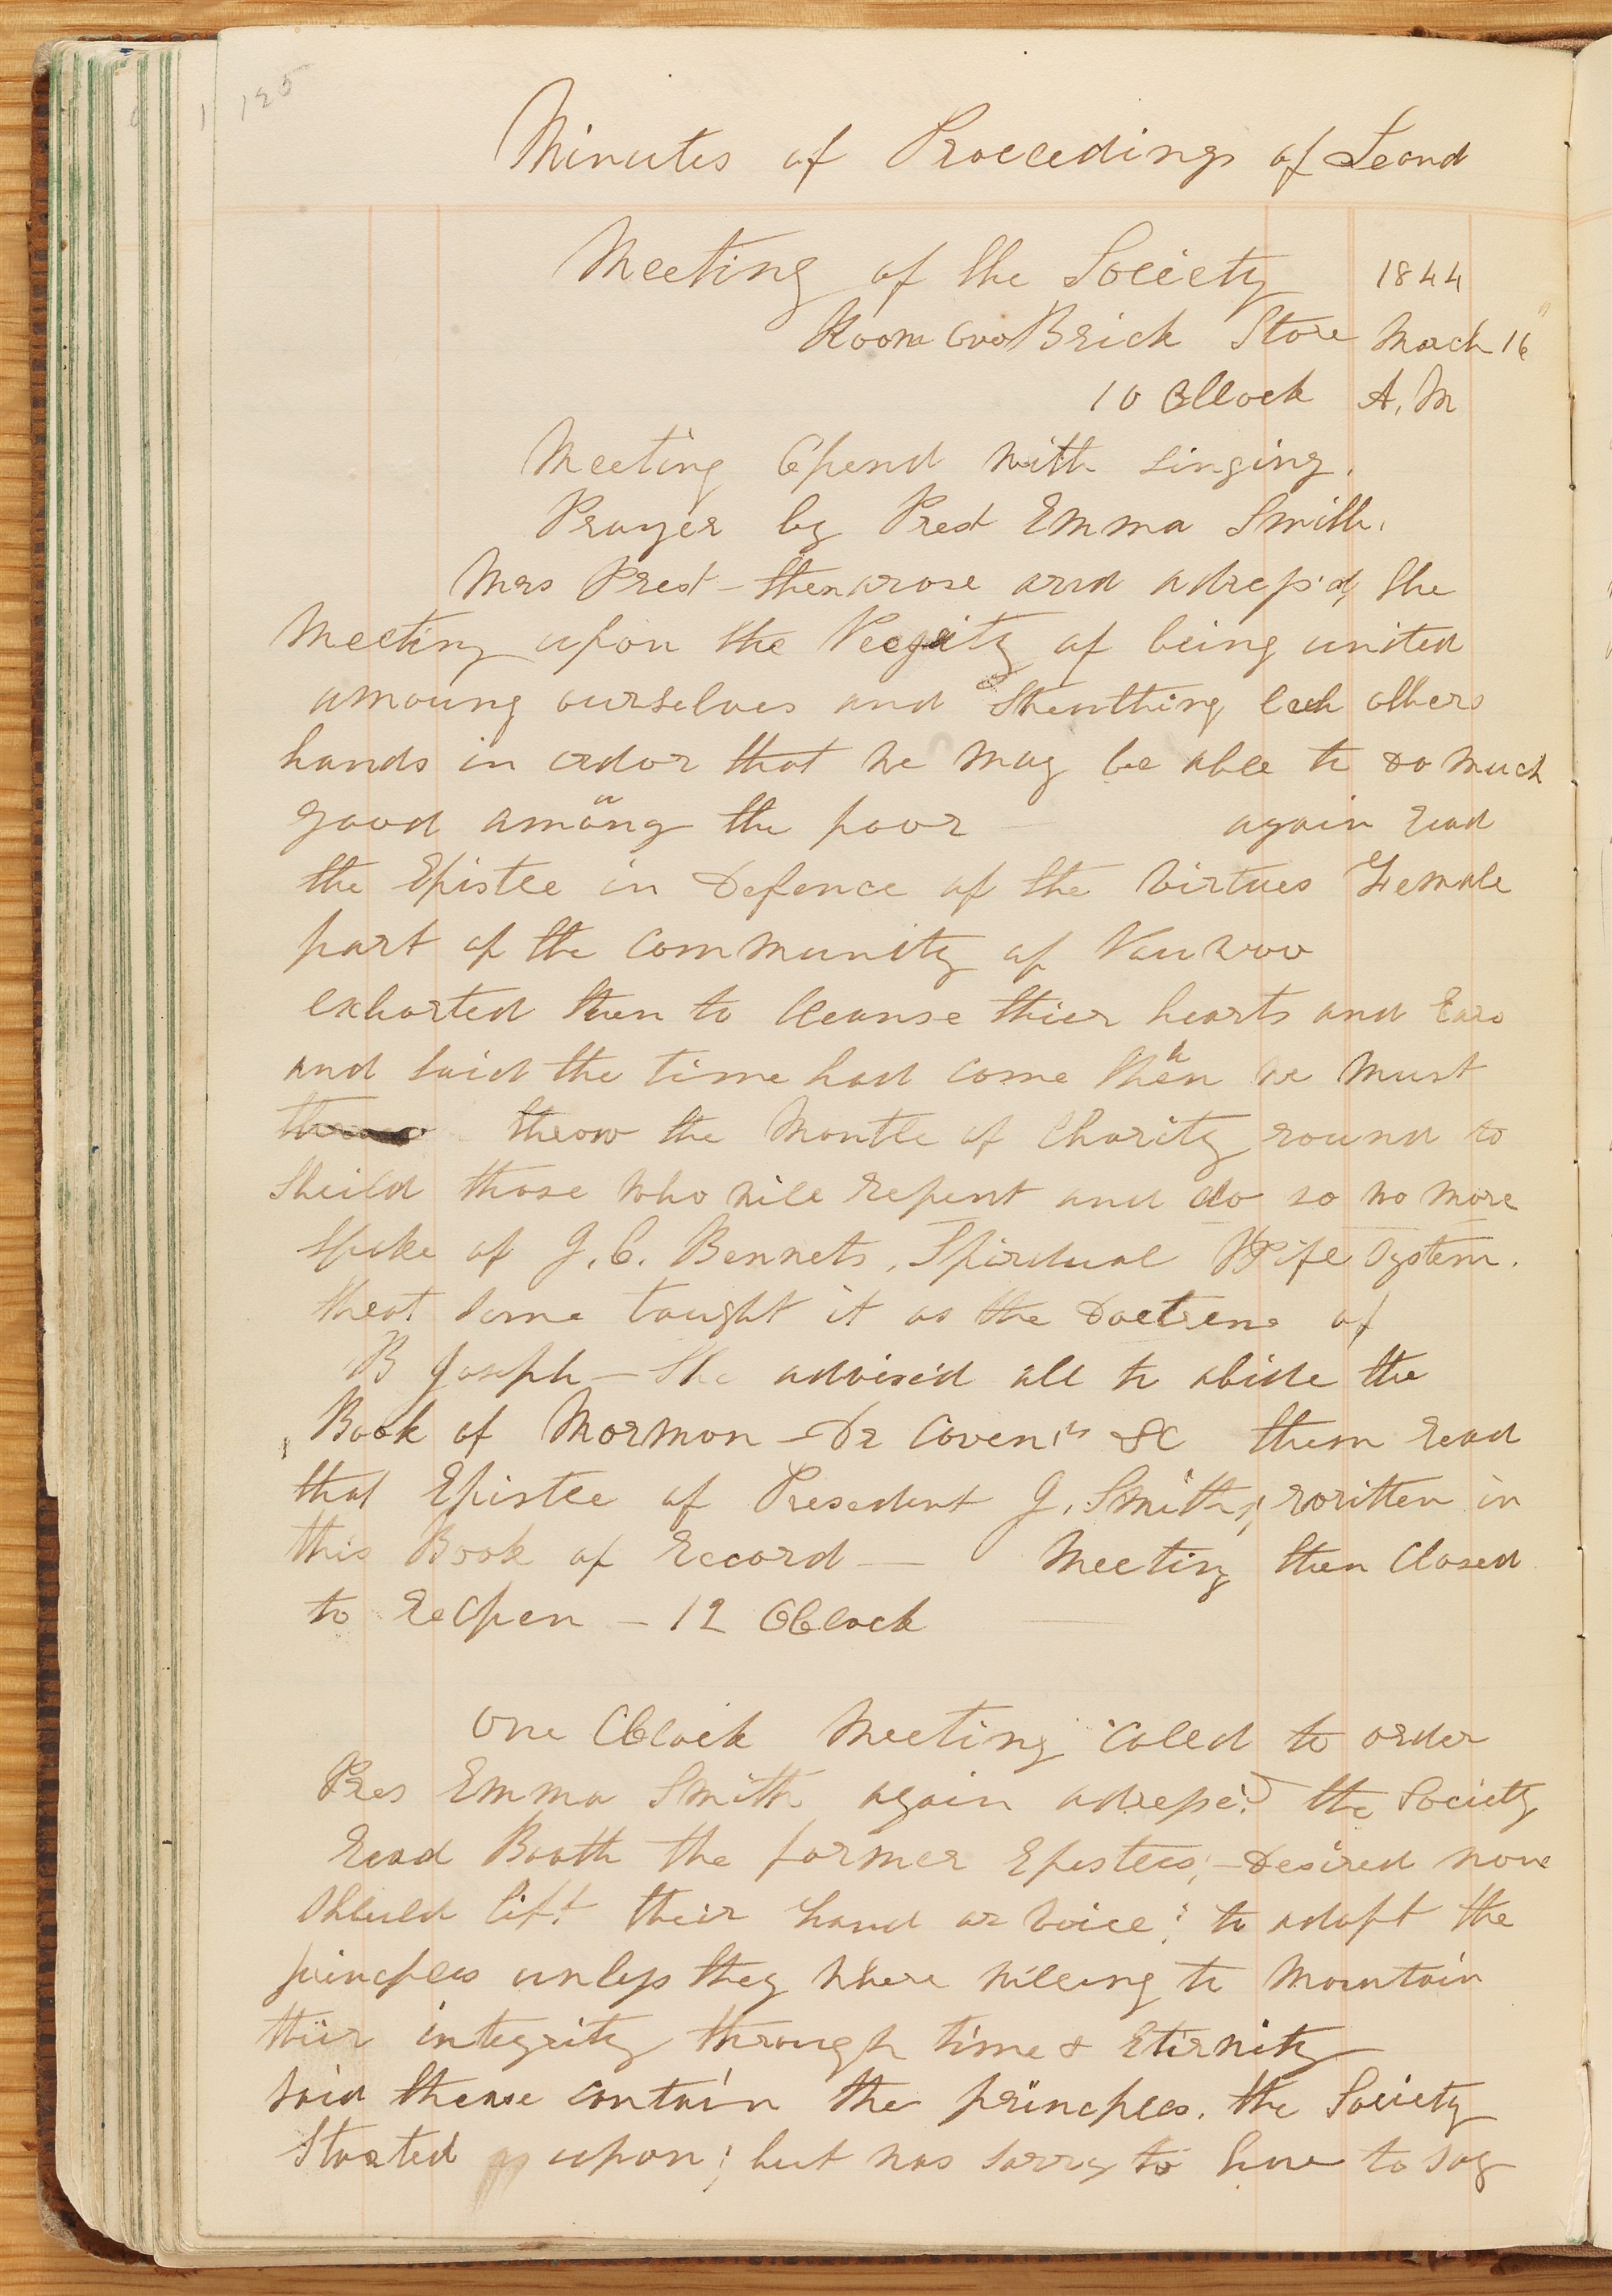 125
Minutes of Proceedings of Secnd
Meeting of the Society 1844
Room over Brick Store March 16"
10 OClock A.M
Meeting Opend with singing.
Prayer by Prest Emma Smith.
Mrs Prest - then arose and adress'd, the
Meeting upon the of being united
amoung ourselves and Strenthing each others
hands in order that we may be able to do much
good amoung the poor again read
the Epistle in Defence of the Virtues Female
part of the community of Nauvoo
exhorted them to cleanse thier hearts and Ears
and said the time had come when we must
throw throw the Mantle of Charity round to
Sheild those who will repent and do so no more
Spoke of J. C. Bennets, Spirdual Wife System.
that some taught it as the Doctrene of
B Joseph - She advised all to abide the
Book of Mormon - Dr Covents &c them read
that Epistle of Presedent J. Smith; written in
this Book of record — Meeting then Closed
to reOpen - 12 OClock
One OClock Meeting caled to order
Pres Emma Smith again adress'd the Society
read Booth the former Epistles, - Desired none
should lift their hand or voice; to adopt the
princples unless they where willing to Maintain
thiir integrity through time & Etirnity
said these contain the princples. the Society
Started upon; but was sorry to have to say